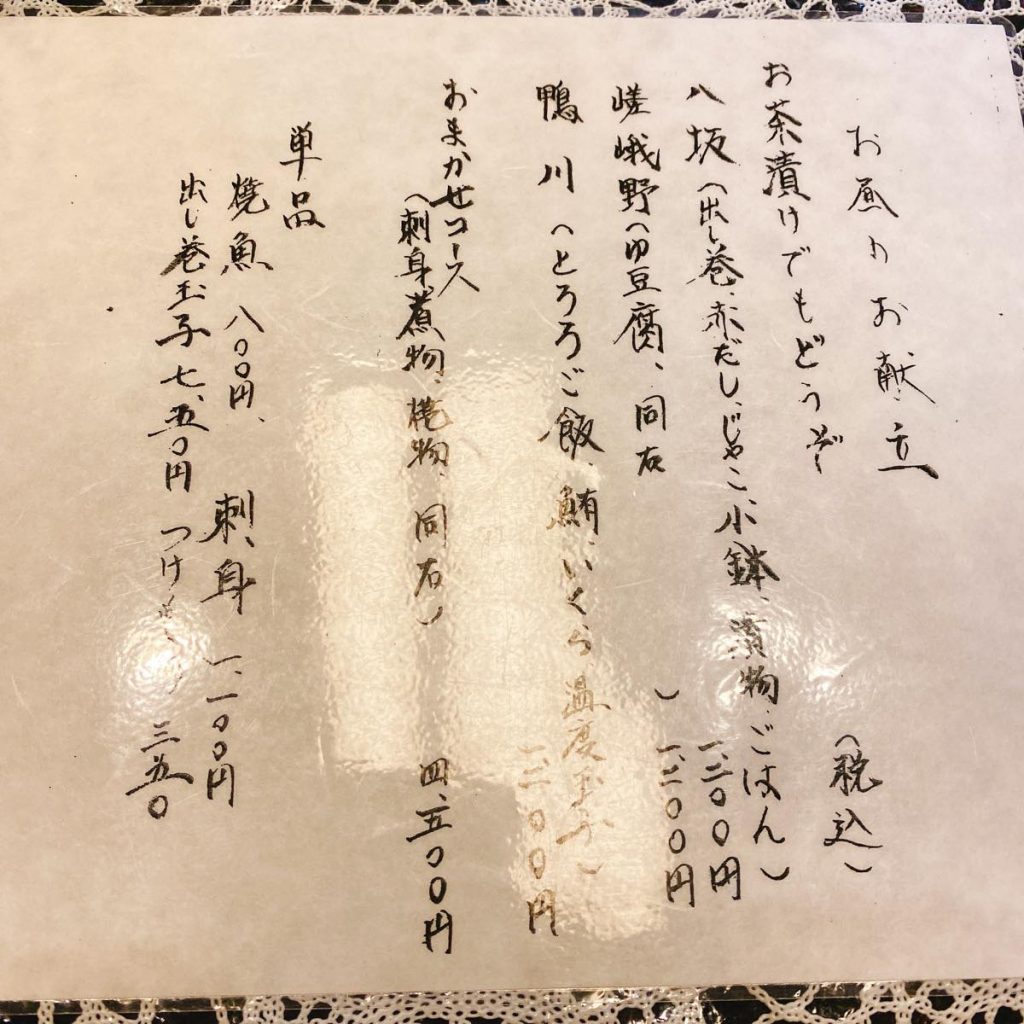 お昼のお献立
(税込)
お茶漬けでもどうぞ
八坂(出し巻、赤だし、じゃこ、小鉢、漬物、ごはん)
一、二〇〇円
嵯峨野(ゆ豆腐、同右)
一、二〇〇円
鴨川(とろろご飯、鮪、いくら温度玉子)
一、二〇〇円
おまかせコース
(刺身、煮物、焼物、同右)
四、五〇〇円
単品
焼魚 八〇〇円、 刺身 一、一〇〇円
出し巻玉子 七、五〇円 つけ 三五〇